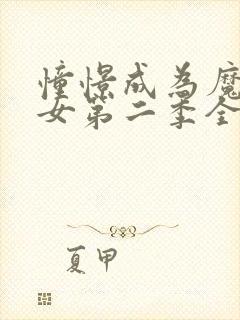 憧憬成为魔
女第二季全
夏甲